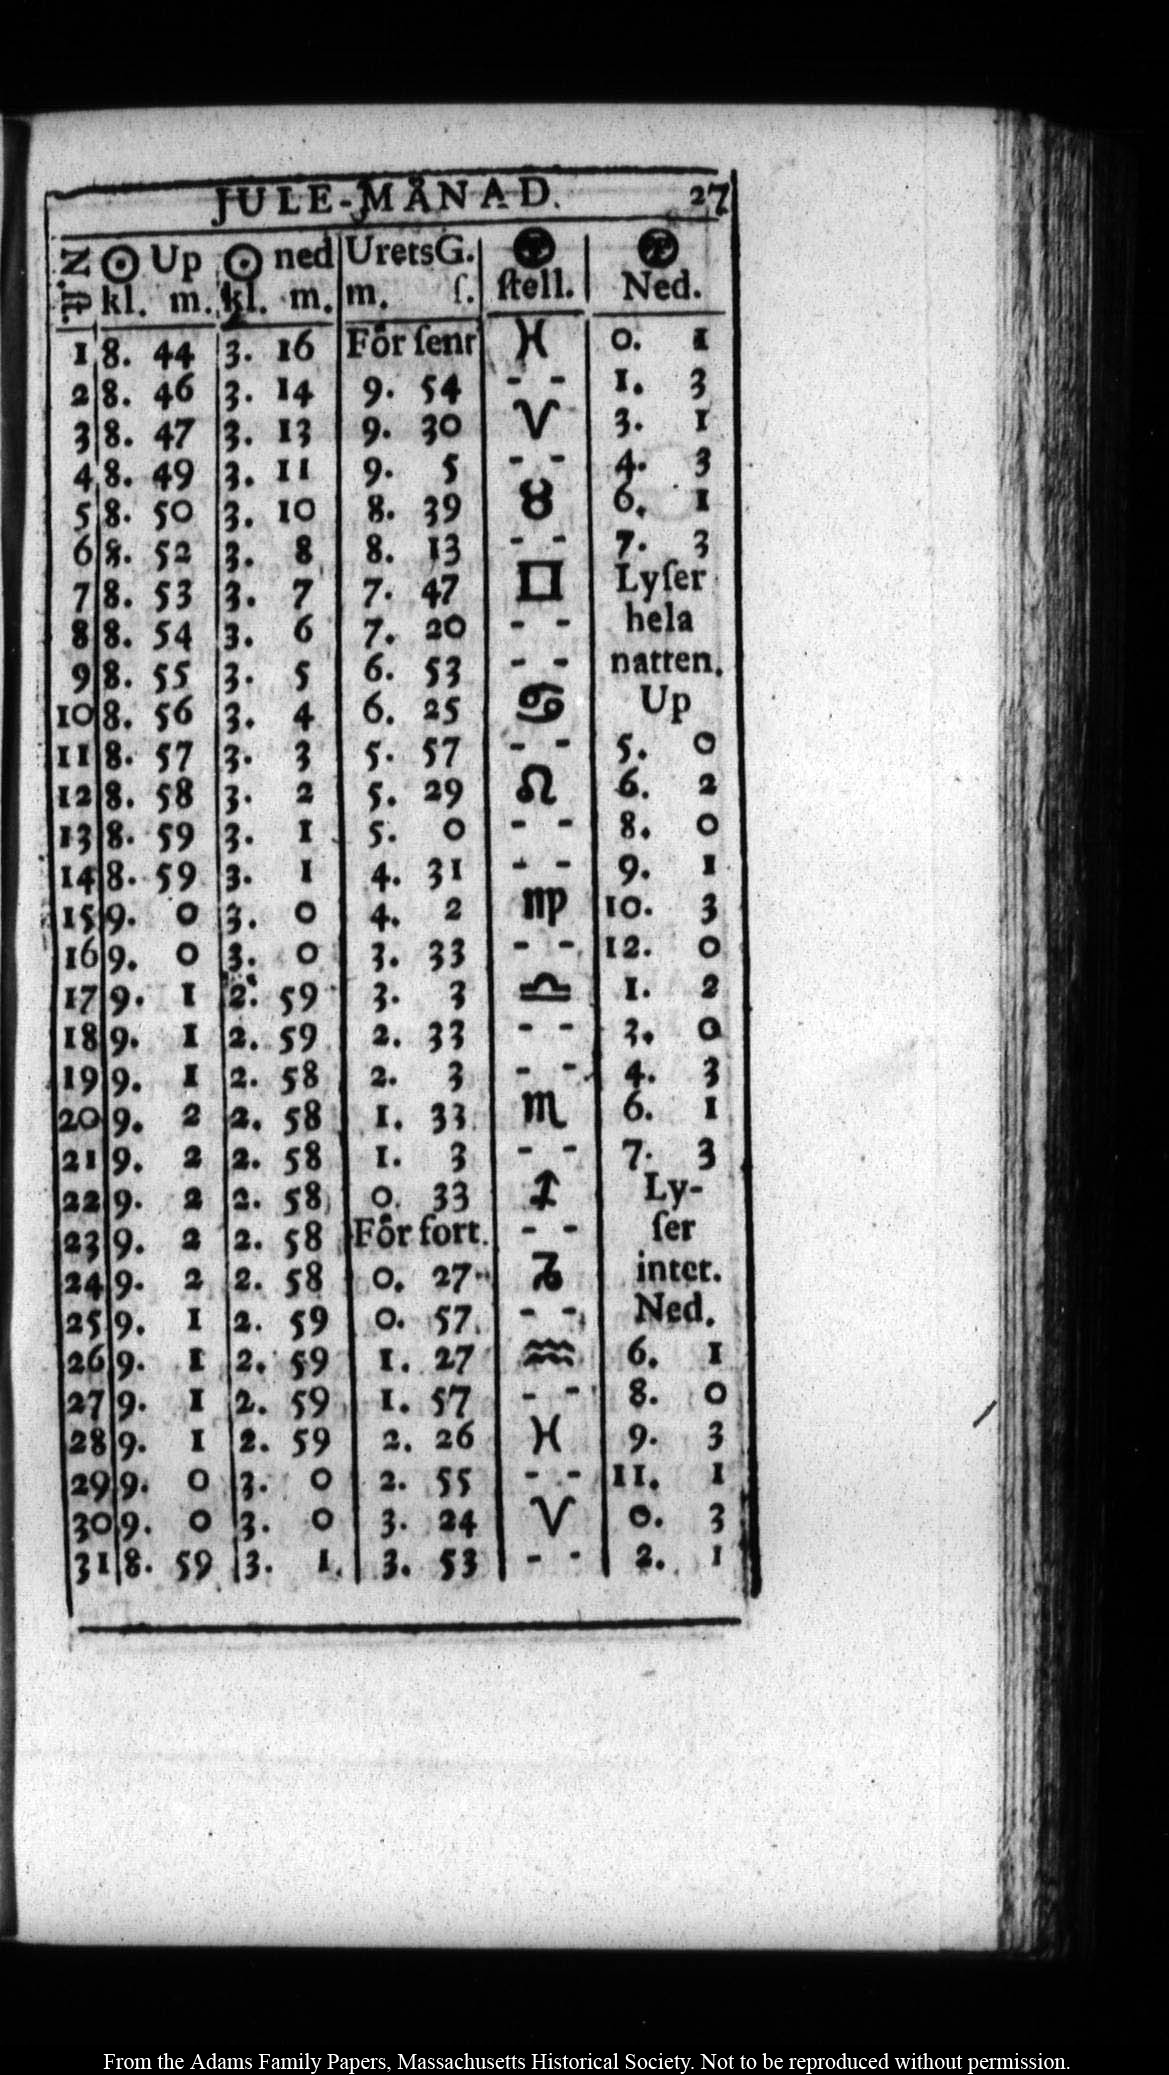 JULE-MÅNAD. 27
☉ Up ☉ ned UretsG.
kl. m. kl. m. m. ſ. ſtell. Ned.
1 8. 44 3. 16 För ſenr ♓ 0. 1
2 8. 46 3. 14 9. 54 - - 1. 3
3 8. 47 3. 13 9. 30 ♈ 3. 1
4 8. 49 3. 11 9. 5 - - 4. 3
5 8. 50 3. 10 8. 39 ♉ 6. 1
6 8. 52 3. 8 8. 13 - - 7. 3
7 8. 53 3. 7 7. 47 ♊ Lyſer
8 8. 54 3. 6 7. 20 - - hela
9 8. 55 3. 5 6. 53 - - natten.
10 8. 56 3. 4 6. 25 ♋ Up
11 8. 57 3. 3 5. 57 - - 5. 0
12 8. 58 3. 2 5. 29 ♌ 6. 2
13 8. 59 3. 1 5. 0 - - 8. 0
14 8. 59 3. 1 4. 31 - - 9. 1
15 9. 0 3. 0 4. 2 ♍ 10. 3
16 9. 0 3. 0 3. 33 - - 12. 0
17 9. 1 2. 59 3. 3 ♎ 1. 2
18 9. 1 2. 59 2. 33 - - 3. 0
19 9. 1 2. 58 2. 3 - - 4. 3
20 9. 2 2. 58 1. 33 ♏ 6. 1
21 9. 2 2. 58 1. 3 - - 7. 3
22 9. 2 2. 58 0. 33 ♐ Ly-
23 9. 2 2. 58 För fort. - - ſer
24 9. 2 2. 58 0. 27 ♑ intet.
25 9. 1 2. 59 0. 57 - - Ned.
26 9. 1 2. 59 1. 27 ♒ 6. 1
27 9. 1 2. 59 1. 57 - - 8. 0
28 9. 1 2. 59 2. 26 ♓ 9. 3
29 9. 0 3. 0 2. 55 - - 11. 1
30 9. 0 3. 0 3. 24 ♈ 0. 3
31 8. 59 3. 1. 3. 53 - - 2. 1
From the Adams Family Papers, Massachusetts Historical Society. Not to be reproduced without permission.